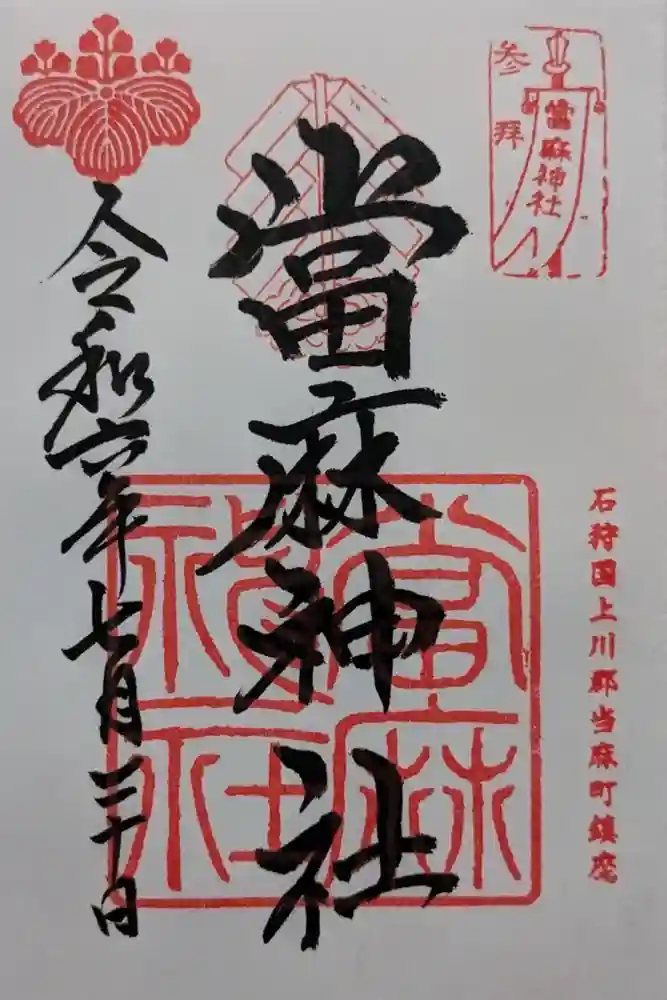 参拝
當麻神社
石狩国上川郡当麻町鎮座
當麻神社
當麻神社
令和六年七月三十日